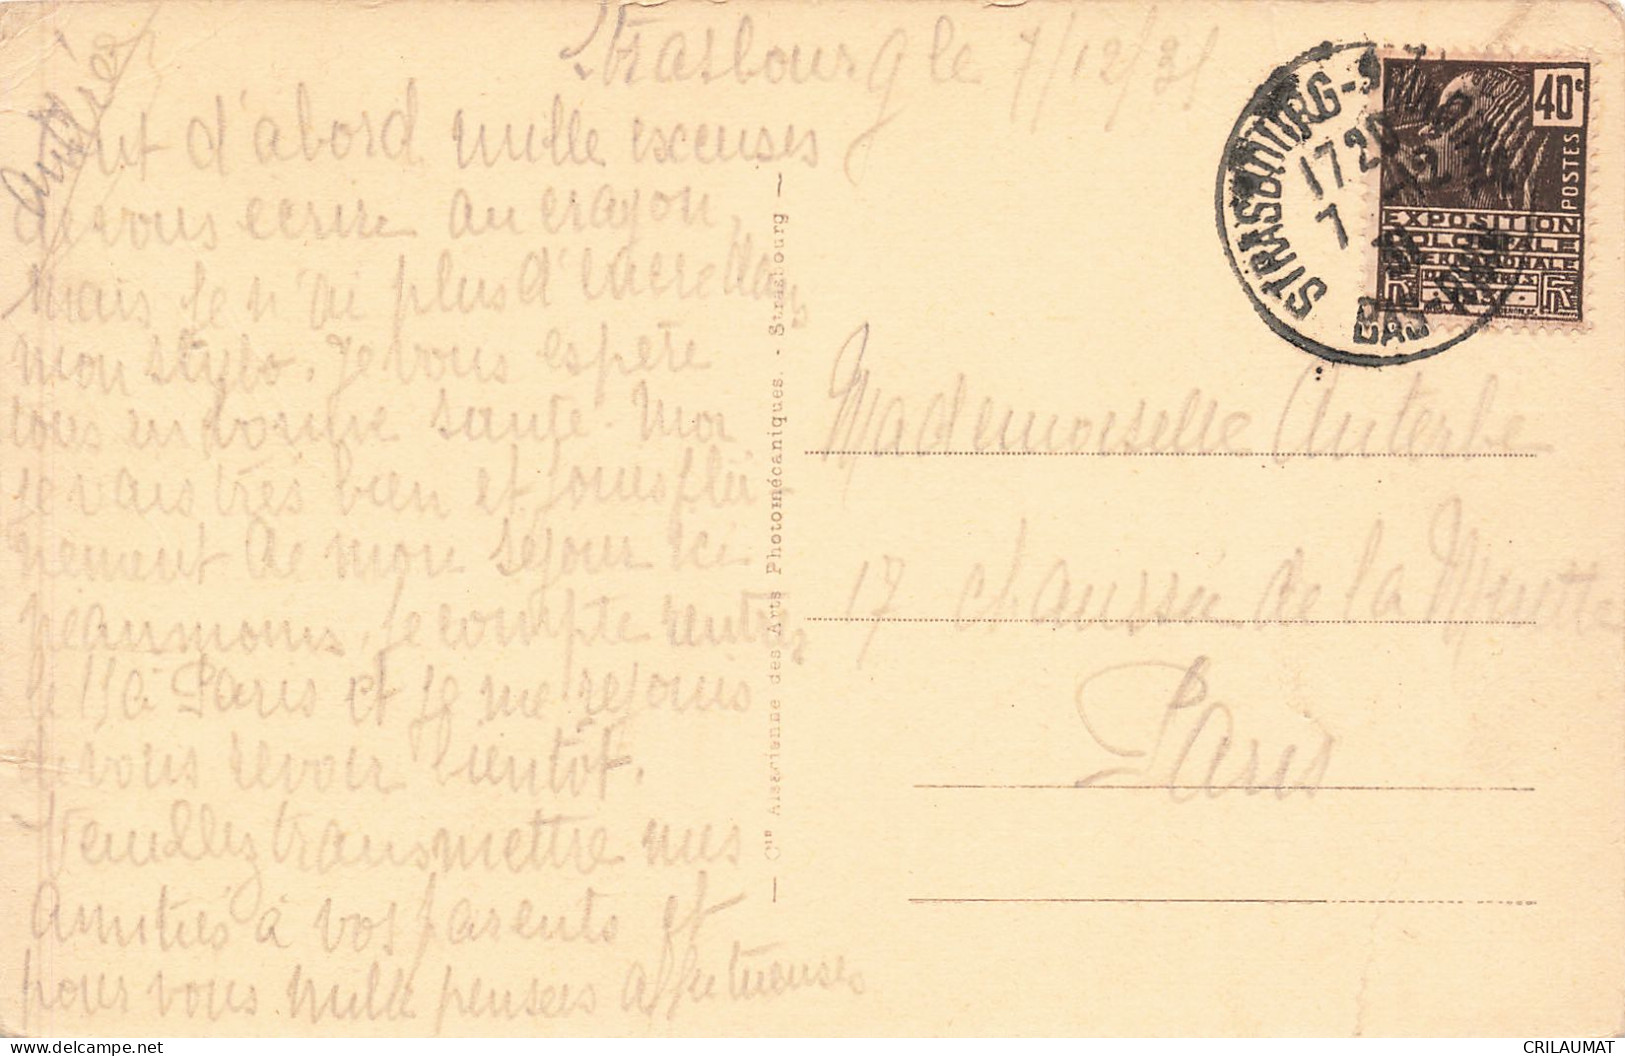 Strasbourg le 7/12/31
Tout d'abord mille excuses
de vous ecrire au crayon,
mais je n'ai plus d'encre dans
mon stylo. Je vous espere
tous en bonne sante. Moi
je vais tres bien et jouis plei-
nement de mon sejour ici
neanmoins, je compte rentrer
le 11 à Paris et je me rejouis
de vous revoir bientôt.
Veuillez transmettre mes
amitiés à vos parents et
pour vous mille pensées affectueuses
André
— Cie Alsacienne des Arts Photomécaniques. - Strasbourg —
STRASBOURG
17 20
7
BAS-RHIN
40c
POSTES
EXPOSITION
COLONIALE
INTERNATIONALE
RF
Mademoiselle
17 chaussée de la Muette
Paris
CRILAUMAT